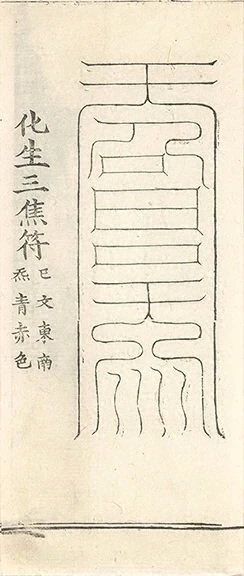 化生三焦符
巳文東南
炁青赤色